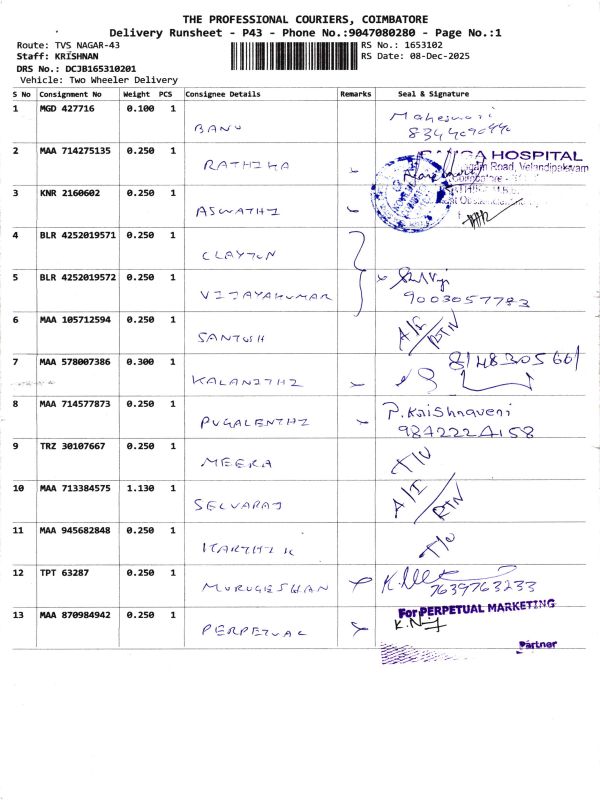 THE PROFESSIONAL COURIERS, COIMBATORE
Delivery Runsheet - P43 - Phone No.:9047080280 - Page No.:1
Route: TVS NAGAR-43 RS No.: 1653102
Staff: KRISHNAN RS Date: 08-Dec-2025
DRS No.: DCJB165310201
Vehicle: Two Wheeler Delivery
S No Consignment No Weight PCS Consignee Details Remarks Seal & Signature
1 MGD 427716 0.100 1 BANU Maheswari
2 MAA 714275135 0.250 1 RATHIKA HOSPITAL
Road, Velandipalayam
3 KNR 2160602 0.250 1 ASWATHI
4 BLR 4252019571 0.250 1 CLAYTON
5 BLR 4252019572 0.250 1 VIJAYAKUMAR
9003057783
6 MAA 105712594 0.250 1 SANTOSH A/I RTN
7 MAA 578007386 0.300 1 KALANITHI 8148305661
8 MAA 714577873 0.250 1 PUGALENTHI P. Krishnaveni
9842224158
9 TRZ 30107667 0.250 1 MEERA
10 MAA 713384575 1.130 1 SELVARAJ A/I RTN
11 MAA 945682848 0.250 1 KARTHI K
12 TPT 63287 0.250 1 MURUGESHAN
7639763233
13 MAA 870984942 0.250 1 PERPETUAL For PERPETUAL MARKETING
Partner